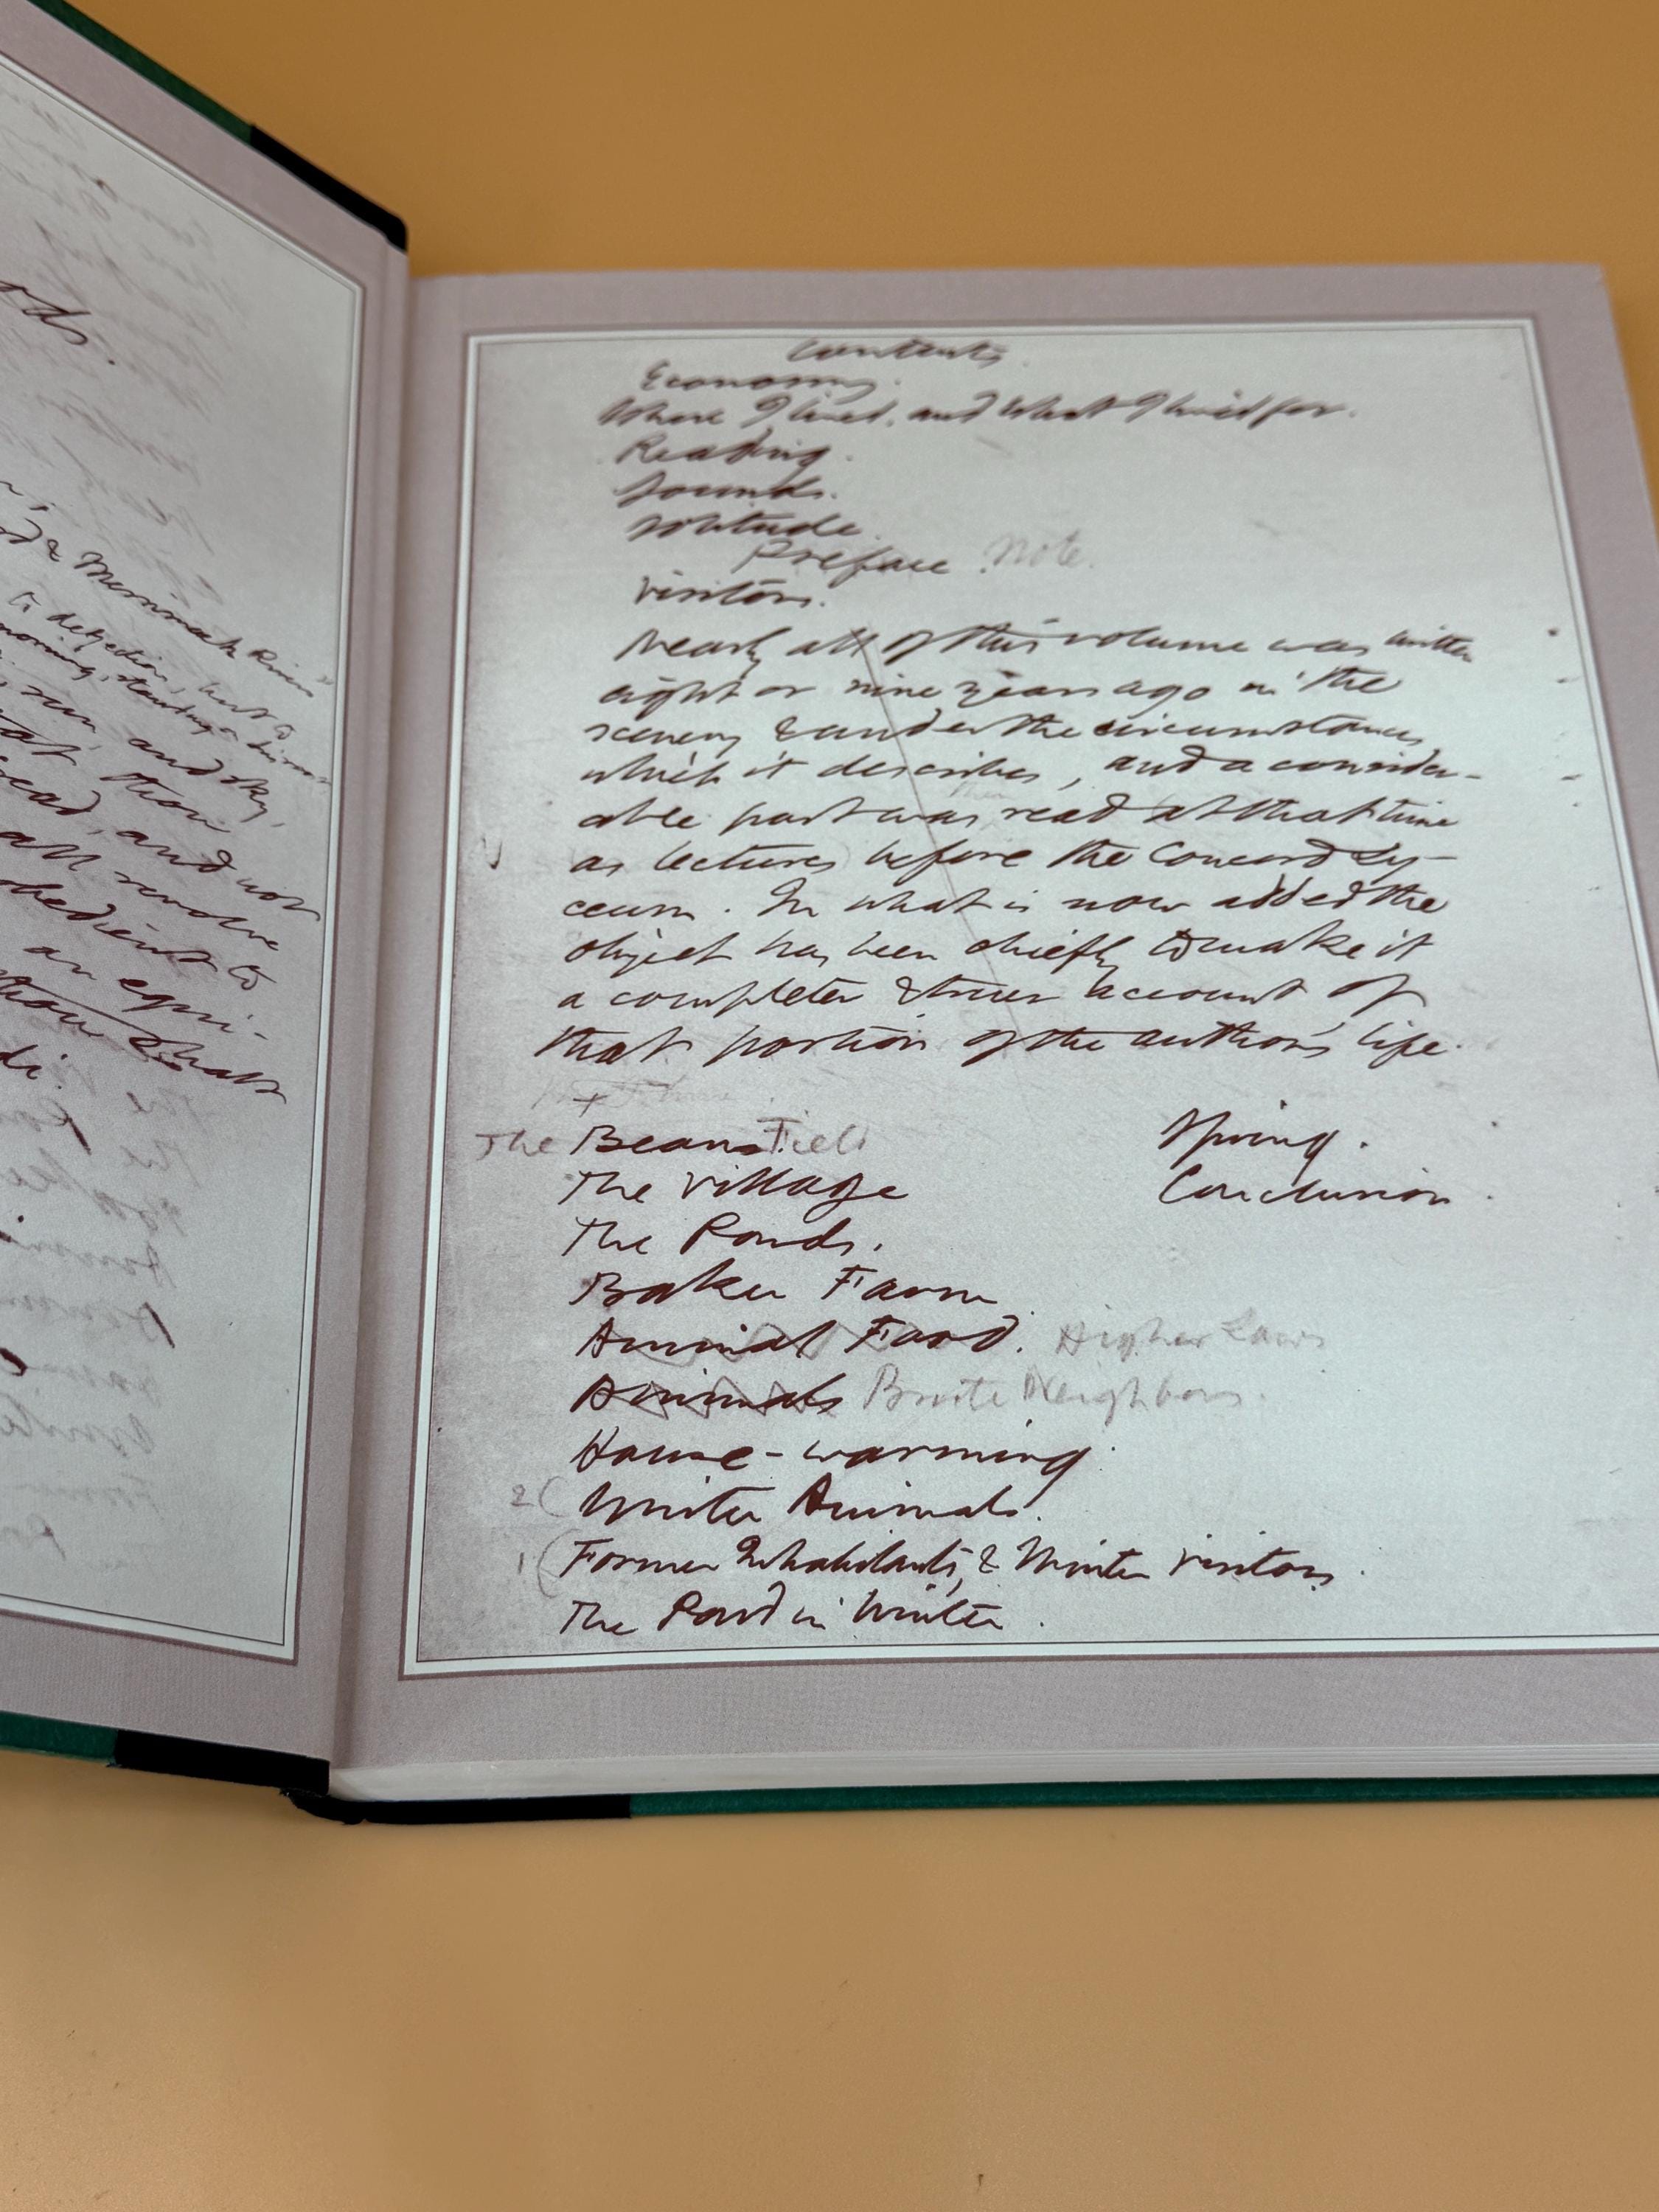 ods.
& Merrimack River"
to dejection, but to
morning, standing on his
sun, and sky,
that thou
read, and not
all revolve
obedient to
an equi-
thou shalt
di.
Contents
Economy.
Where I lived, and What I lived for.
Reading.
Sounds.
Solitude.
Preface. Note.
Visitors.
Nearly all of this volume was written
eight or nine years ago in the
scenery & under the circumstances
which it describes, and a consider-
able part was read at that time
as lectures before the Concord Ly-
ceum. In what is now added the
object has been chiefly to make it
a completer & truer account of
that portion of the author's life.
The Beans. Field
The Village
The Ponds.
Baker Farm
Animal Food. Higher Laws
Animals Brute Neighbors.
House-warming.
2( Winter Animals.
1( Former Inhabitants, & Winter Visitors.
The Pond in Winter.
Spring.
Conclusion.